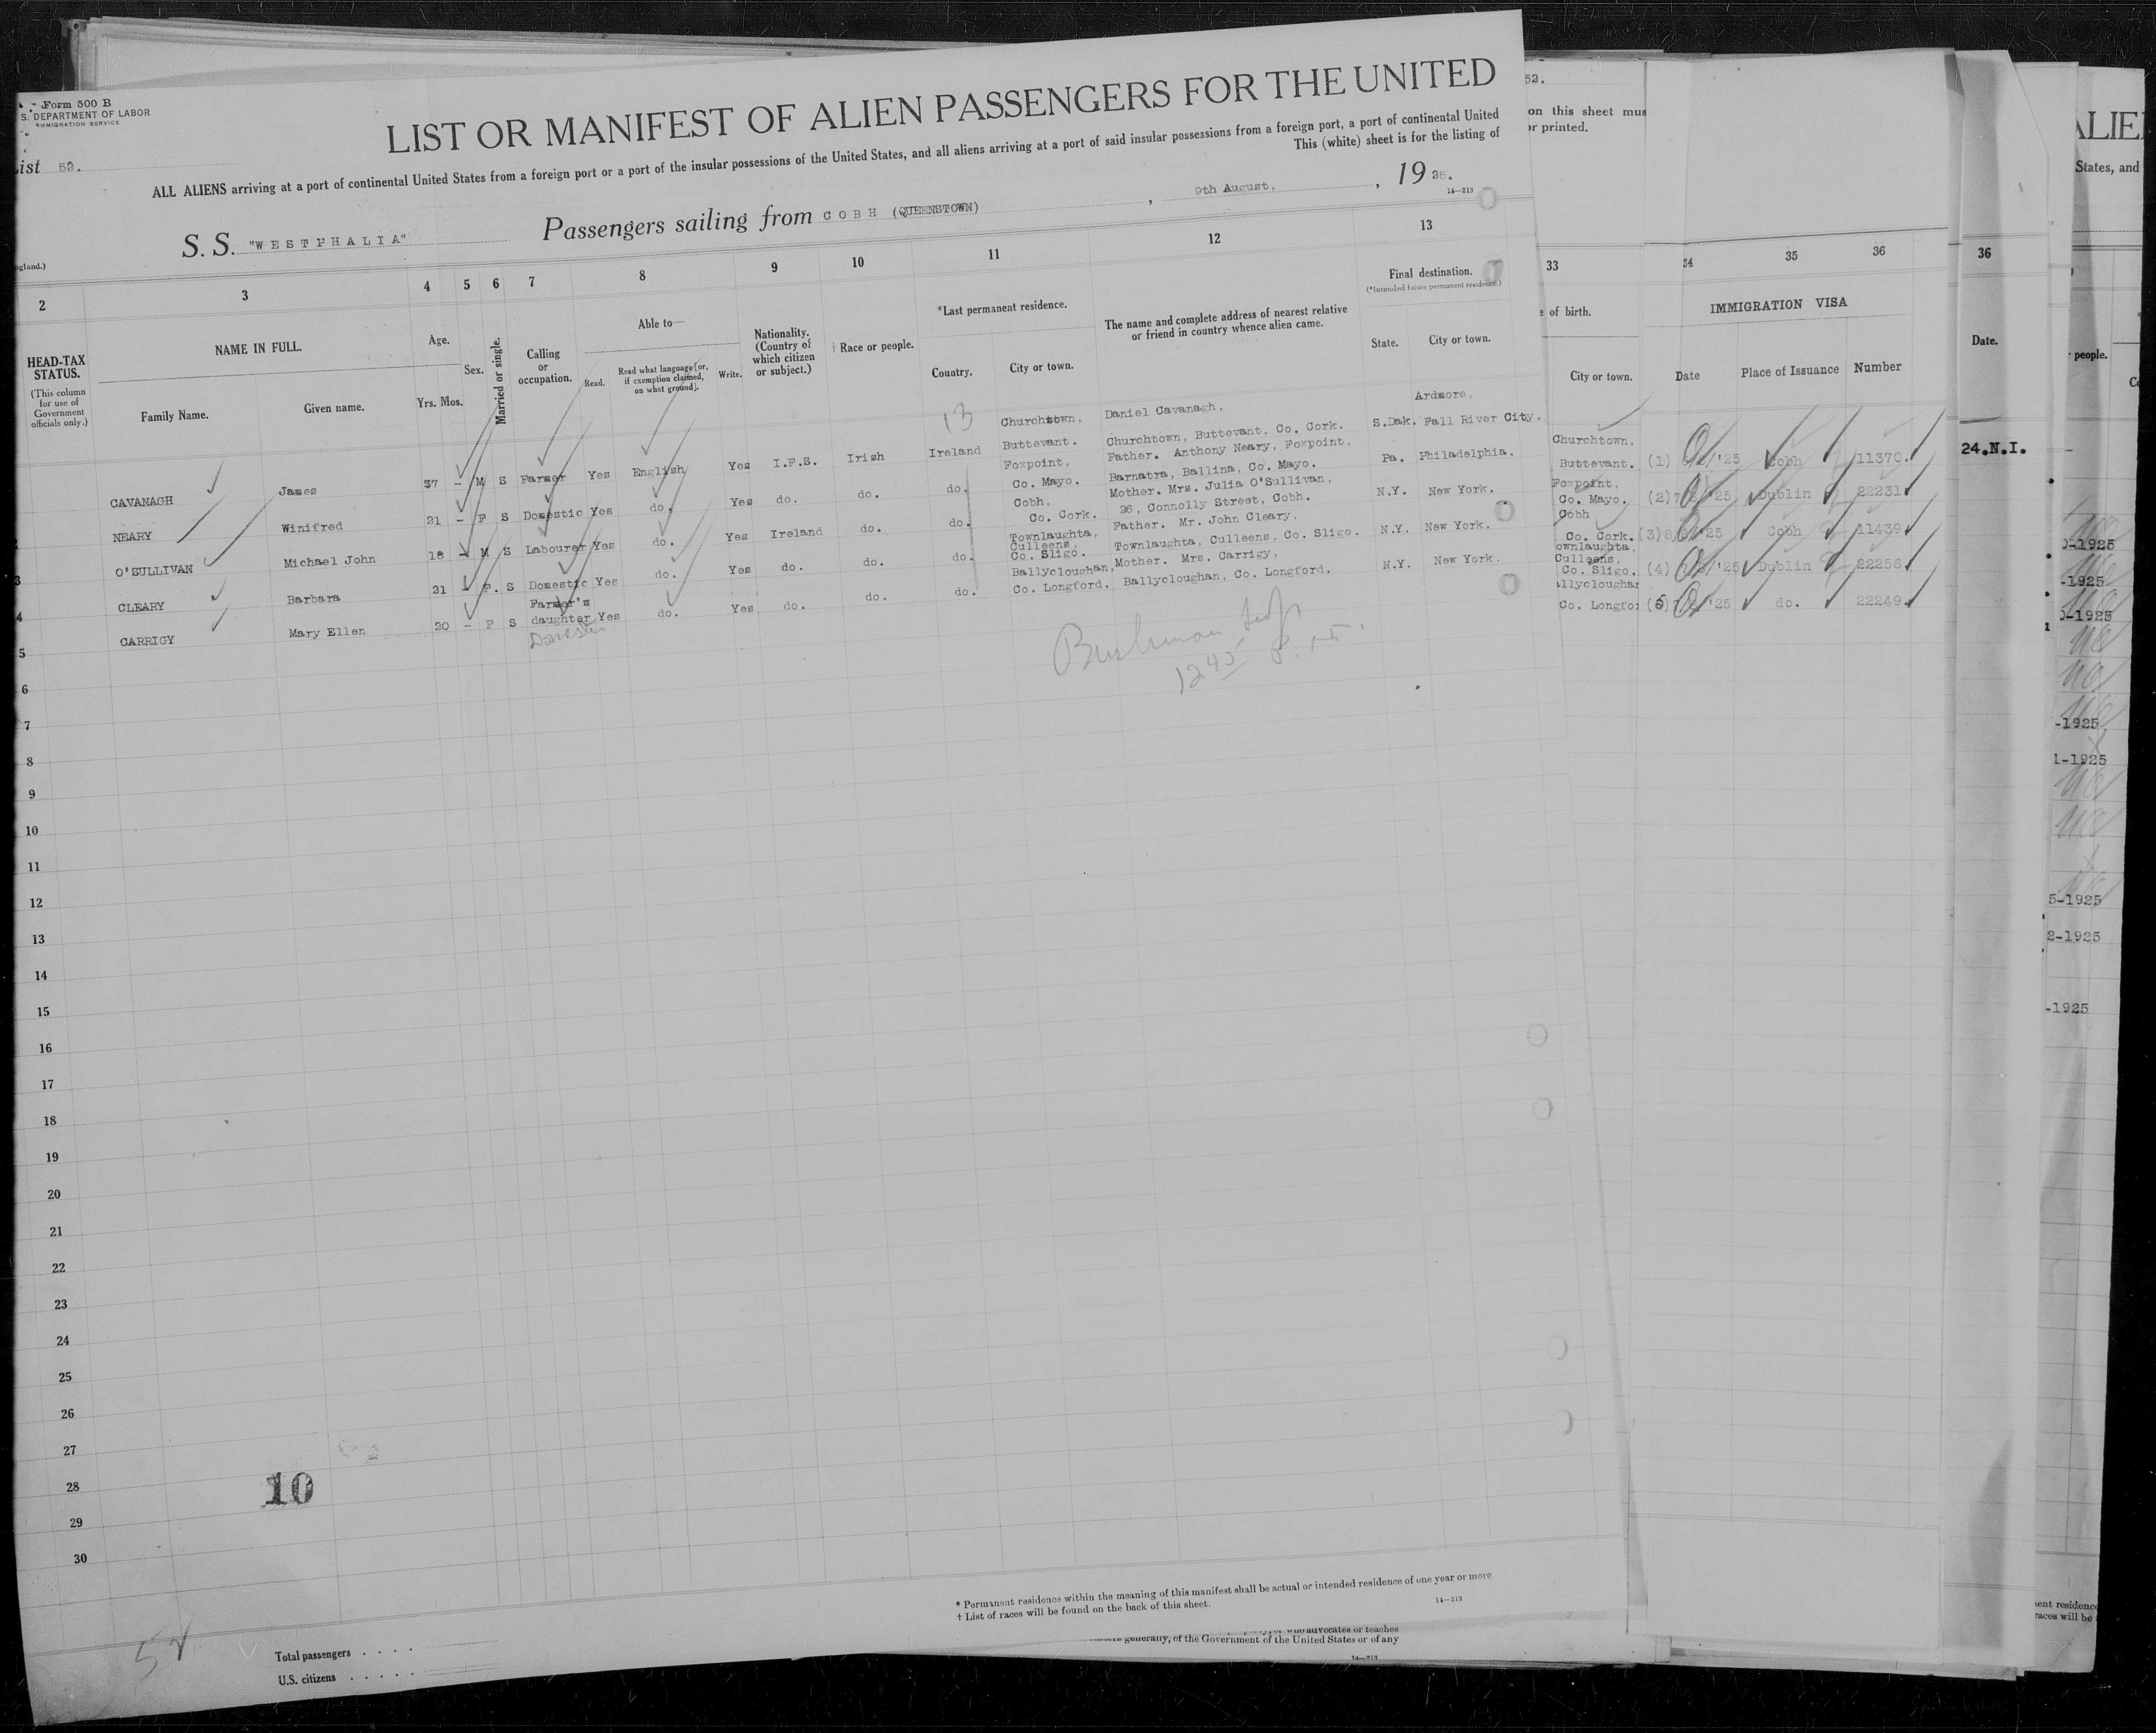 Form 500 B
S. DEPARTMENT OF LABOR
IMMIGRATION SERVICE
List 52.
LIST OR MANIFEST OF ALIEN PASSENGERS FOR THE UNITED
ALL ALIENS arriving at a port of continental United States from a foreign port or a port of the insular possessions of the United States, and all aliens arriving at a port of said insular possessions from a foreign port, a port of continental United
This (white) sheet is for the listing of
S. S. "WESTPHALIA" Passengers sailing from COBH (QUEENSTOWN), 9th August, , 19 25.
14—213
ngland.)
2 3 4 5 6 7 8 9 10 11 12 13
HEAD-TAX STATUS.
(This column for use of Government officials only.)
NAME IN FULL.
Family Name. Given name.
Age.
Yrs. Mos.
Sex.
Married or single.
Calling or occupation.
Able to—
Read. Read what language [or, if exemption claimed, on what ground]. Write.
Nationality. (Country of which citizen or subject.)
† Race or people.
*Last permanent residence.
Country. City or town.
The name and complete address of nearest relative or friend in country whence alien came.
Final destination.
(*Intended future permanent residence.)
State. City or town.
13
CAVANAGH James 37 – M S Farmer Yes English Yes I.F.S. Irish Ireland Churchtown, Buttevant. Daniel Cavanagh, Churchtown, Buttevant, Co. Cork. S.Dak. Ardmore, Fall River City.
NEARY Winifred 21 – F S Domestic Yes do. Yes do. do. do. Foxpoint, Co. Mayo. Father. Anthony Neary, Foxpoint, Barnatra, Ballina, Co. Mayo. Pa. Philadelphia.
3 O'SULLIVAN Michael John 18 – M S Labourer Yes do. Yes Ireland do. do. Cobh, Co. Cork. Mother. Mrs. Julia O'Sullivan, 26, Connolly Street, Cobh. N.Y. New York.
4 CLEARY Barbara 21 – F. S Domestic Yes do. Yes do. do. do. Townlaughta, Culleens, Co. Sligo. Father. Mr. John Cleary, Townlaughta, Culleens, Co. Sligo. N.Y. New York.
5 CARRIGY Mary Ellen 20 – F S Farmer's daughter Yes do. Yes do. do. do. Ballycloughan, Co. Longford. Mother. Mrs. Carrigy, Ballycloughan, Co. Longford. N.Y. New York.
Domestic
1245 P.
6
7
8
9
10
11
12
13
14
15
16
17
18
19
20
21
22
23
24
25
26
27
28
29
30
10
52
Total passengers . . . .
U.S. citizens . . . . .
* Permanent residence within the meaning of this manifest shall be actual or intended residence of one year or more
† List of races will be found on the back of this sheet.
14—213
who advocates or teaches
generally, of the Government of the United States or of any
14—213
52.
on this sheet mus
or printed.
33 34 35 36
of birth.
City or town.
IMMIGRATION VISA
Date Place of Issuance Number
Churchtown,
Buttevant. (1) '25 Cobh 11370.
Foxpoint,
Co. Mayo. (2) 7 '25 Dublin 22231
Cobh
Co. Cork. (3) 8 '25 Cobh 11439
ownlaughta,
Culleens,
Co. Sligo. (4) '25 Dublin 22256
llycloughan
Co. Longfor (5) '25 do. 22249.
36
Date.
24.N.I.
ALIE
States, and
people.
Co
0-1925
-1925
0-1925
-1925
1-1925
5-1925
2-1925
-1925
ent residence
races will be